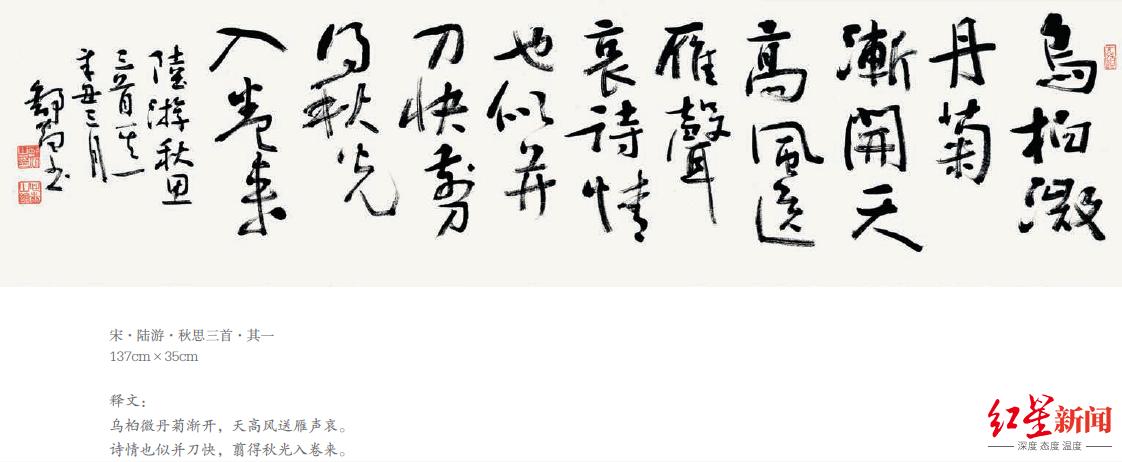 烏桕微
丹菊
漸開天
高風送
雁聲
哀詩情
也似并
刀快剪
得秋光
入卷來
陸游秋思
三首其一
辛丑三月
宋·陆游·秋思三首·其一
137cm×35cm
释文：
乌桕微丹菊渐开，天高风送雁声哀。
诗情也似并刀快，翦得秋光入卷来。
红星新闻
深度 态度 温度